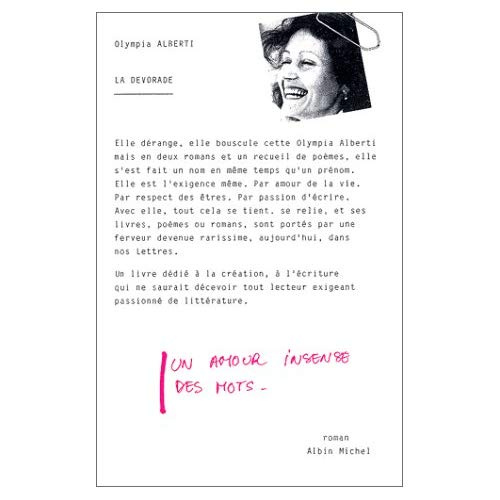 Olympia ALBERTI
LA DEVORADE
Elle dérange, elle bouscule cette Olympia Alberti
mais en deux romans et un recueil de poèmes, elle
s'est fait un nom en même temps qu'un prénom.
Elle est l'exigence même. Par amour de la vie.
Par respect des êtres. Par passion d'écrire.
Avec elle, tout cela se tient. se relie, et ses
livres, poèmes ou romans, sont portés par une
ferveur devenue rarissime, aujourd'hui, dans
nos Lettres.
Un livre dédié à la création, à l'écriture
qui me saurait décevoir tout lecteur exigeant
passionné de littérature.
UN AMOUR INSENSE
DES MOTS_
roman
Albin Michel